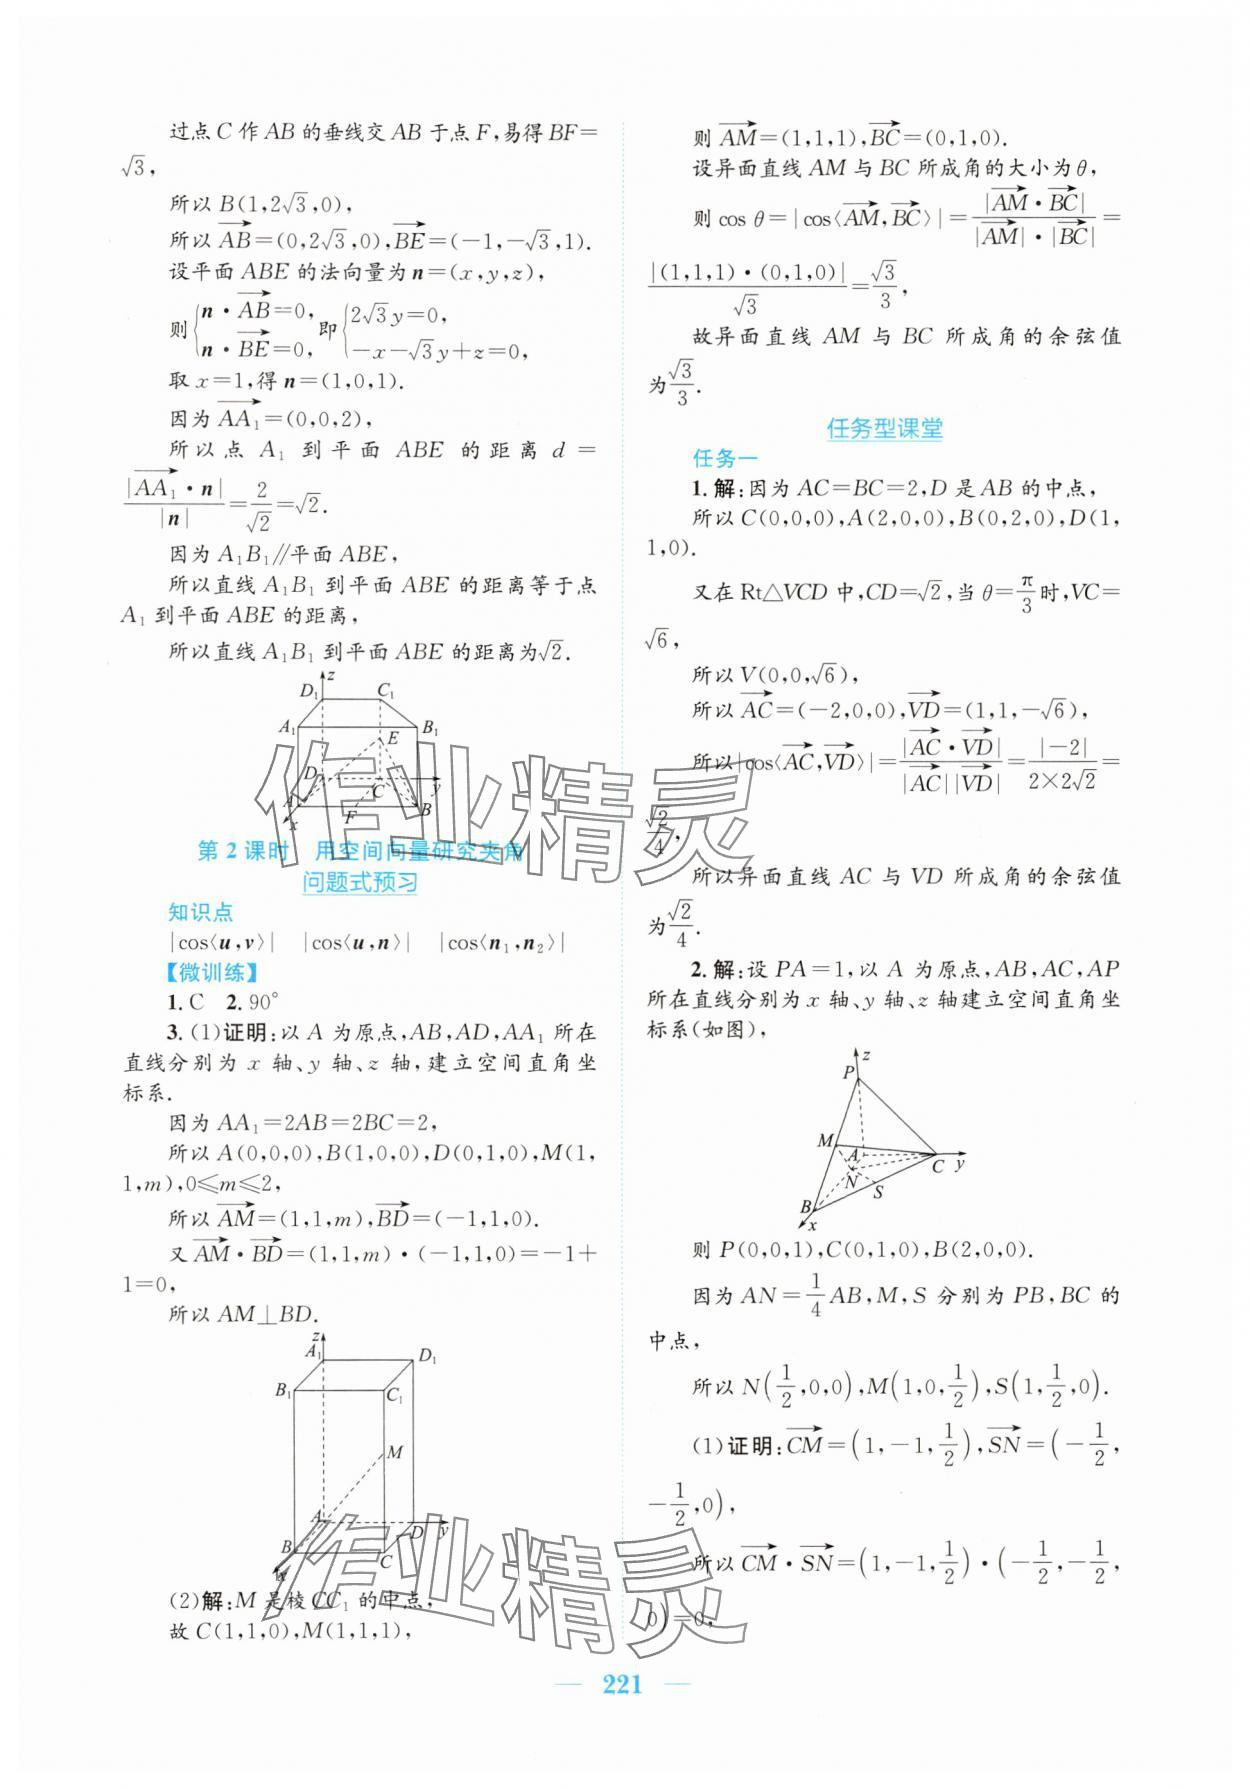 过点 C 作 AB 的垂线交 AB 于点 F,易得 BF=
√3,
所以 B(1,2√3,0),
所以 AB→=(0,2√3,0),BE→=(-1,-√3,1).
设平面 ABE 的法向量为 n=(x,y,z),
则{n·AB→=0, n·BE→=0, 即{2√3y=0, -x-√3y+z=0,
取 x=1,得 n=(1,0,1).
因为 AA₁→=(0,0,2),
所以点 A₁ 到平面 ABE 的距离 d =
|AA₁→·n|/|n|=2/√2=√2.
因为 A₁B₁∥平面 ABE,
所以直线 A₁B₁ 到平面 ABE 的距离等于点
A₁ 到平面 ABE 的距离,
所以直线 A₁B₁ 到平面 ABE 的距离为√2.
z
D₁ C₁
A₁ B₁
E
D C y
A F B
x
第 2 课时 用空间向量研究夹角
问题式预习
知识点
|cos⟨u,v⟩| |cos⟨u,n⟩| |cos⟨n₁,n₂⟩|
【微训练】
1.C 2.90°
3.(1)证明:以 A 为原点,AB,AD,AA₁ 所在
直线分别为 x 轴、y 轴、z 轴,建立空间直角坐
标系.
因为 AA₁=2AB=2BC=2,
所以 A(0,0,0),B(1,0,0),D(0,1,0),M(1,
1,m),0⩽m⩽2,
所以 AM→=(1,1,m),BD→=(-1,1,0).
又 AM→·BD→=(1,1,m)·(-1,1,0)=-1+
1=0,
所以 AM⊥BD.
z
A₁ D₁
B₁ C₁
M
A D y
B C
x
(2)解:M 是棱 CC₁ 的中点,
故 C(1,1,0),M(1,1,1),
则 AM→=(1,1,1),BC→=(0,1,0).
设异面直线 AM 与 BC 所成角的大小为 θ,
则 cos θ=|cos⟨AM→,BC→⟩|=|AM→·BC→|/|AM→|·|BC→|=
|(1,1,1)·(0,1,0)|/√3=√3/3,
故异面直线 AM 与 BC 所成角的余弦值
为√3/3.
任务型课堂
任务一
1.解:因为 AC=BC=2,D 是 AB 的中点,
所以 C(0,0,0),A(2,0,0),B(0,2,0),D(1,
1,0).
又在 Rt△VCD 中,CD=√2,当 θ=π/3时,VC=
√6,
所以 V(0,0,√6),
所以 AC→=(-2,0,0),VD→=(1,1,-√6),
所以|cos⟨AC→,VD→⟩|=|AC→·VD→|/|AC→||VD→|=|-2|/2×2√2=
√2/4,
所以异面直线 AC 与 VD 所成角的余弦值
为√2/4.
2.解:设 PA=1,以 A 为原点,AB,AC,AP
所在直线分别为 x 轴、y 轴、z 轴建立空间直角坐
标系(如图),
z
P
M
A C y
N S
B
x
则 P(0,0,1),C(0,1,0),B(2,0,0).
因为 AN=1/4AB,M,S 分别为 PB,BC 的
中点,
所以 N(1/2,0,0),M(1,0,1/2),S(1,1/2,0).
(1)证明:CM→=(1,-1,1/2),SN→=(-1/2,
-1/2,0),
所以 CM→·SN→=(1,-1,1/2)·(-1/2,-1/2,
0)=0,
作业精灵
作业精灵
— 221 —